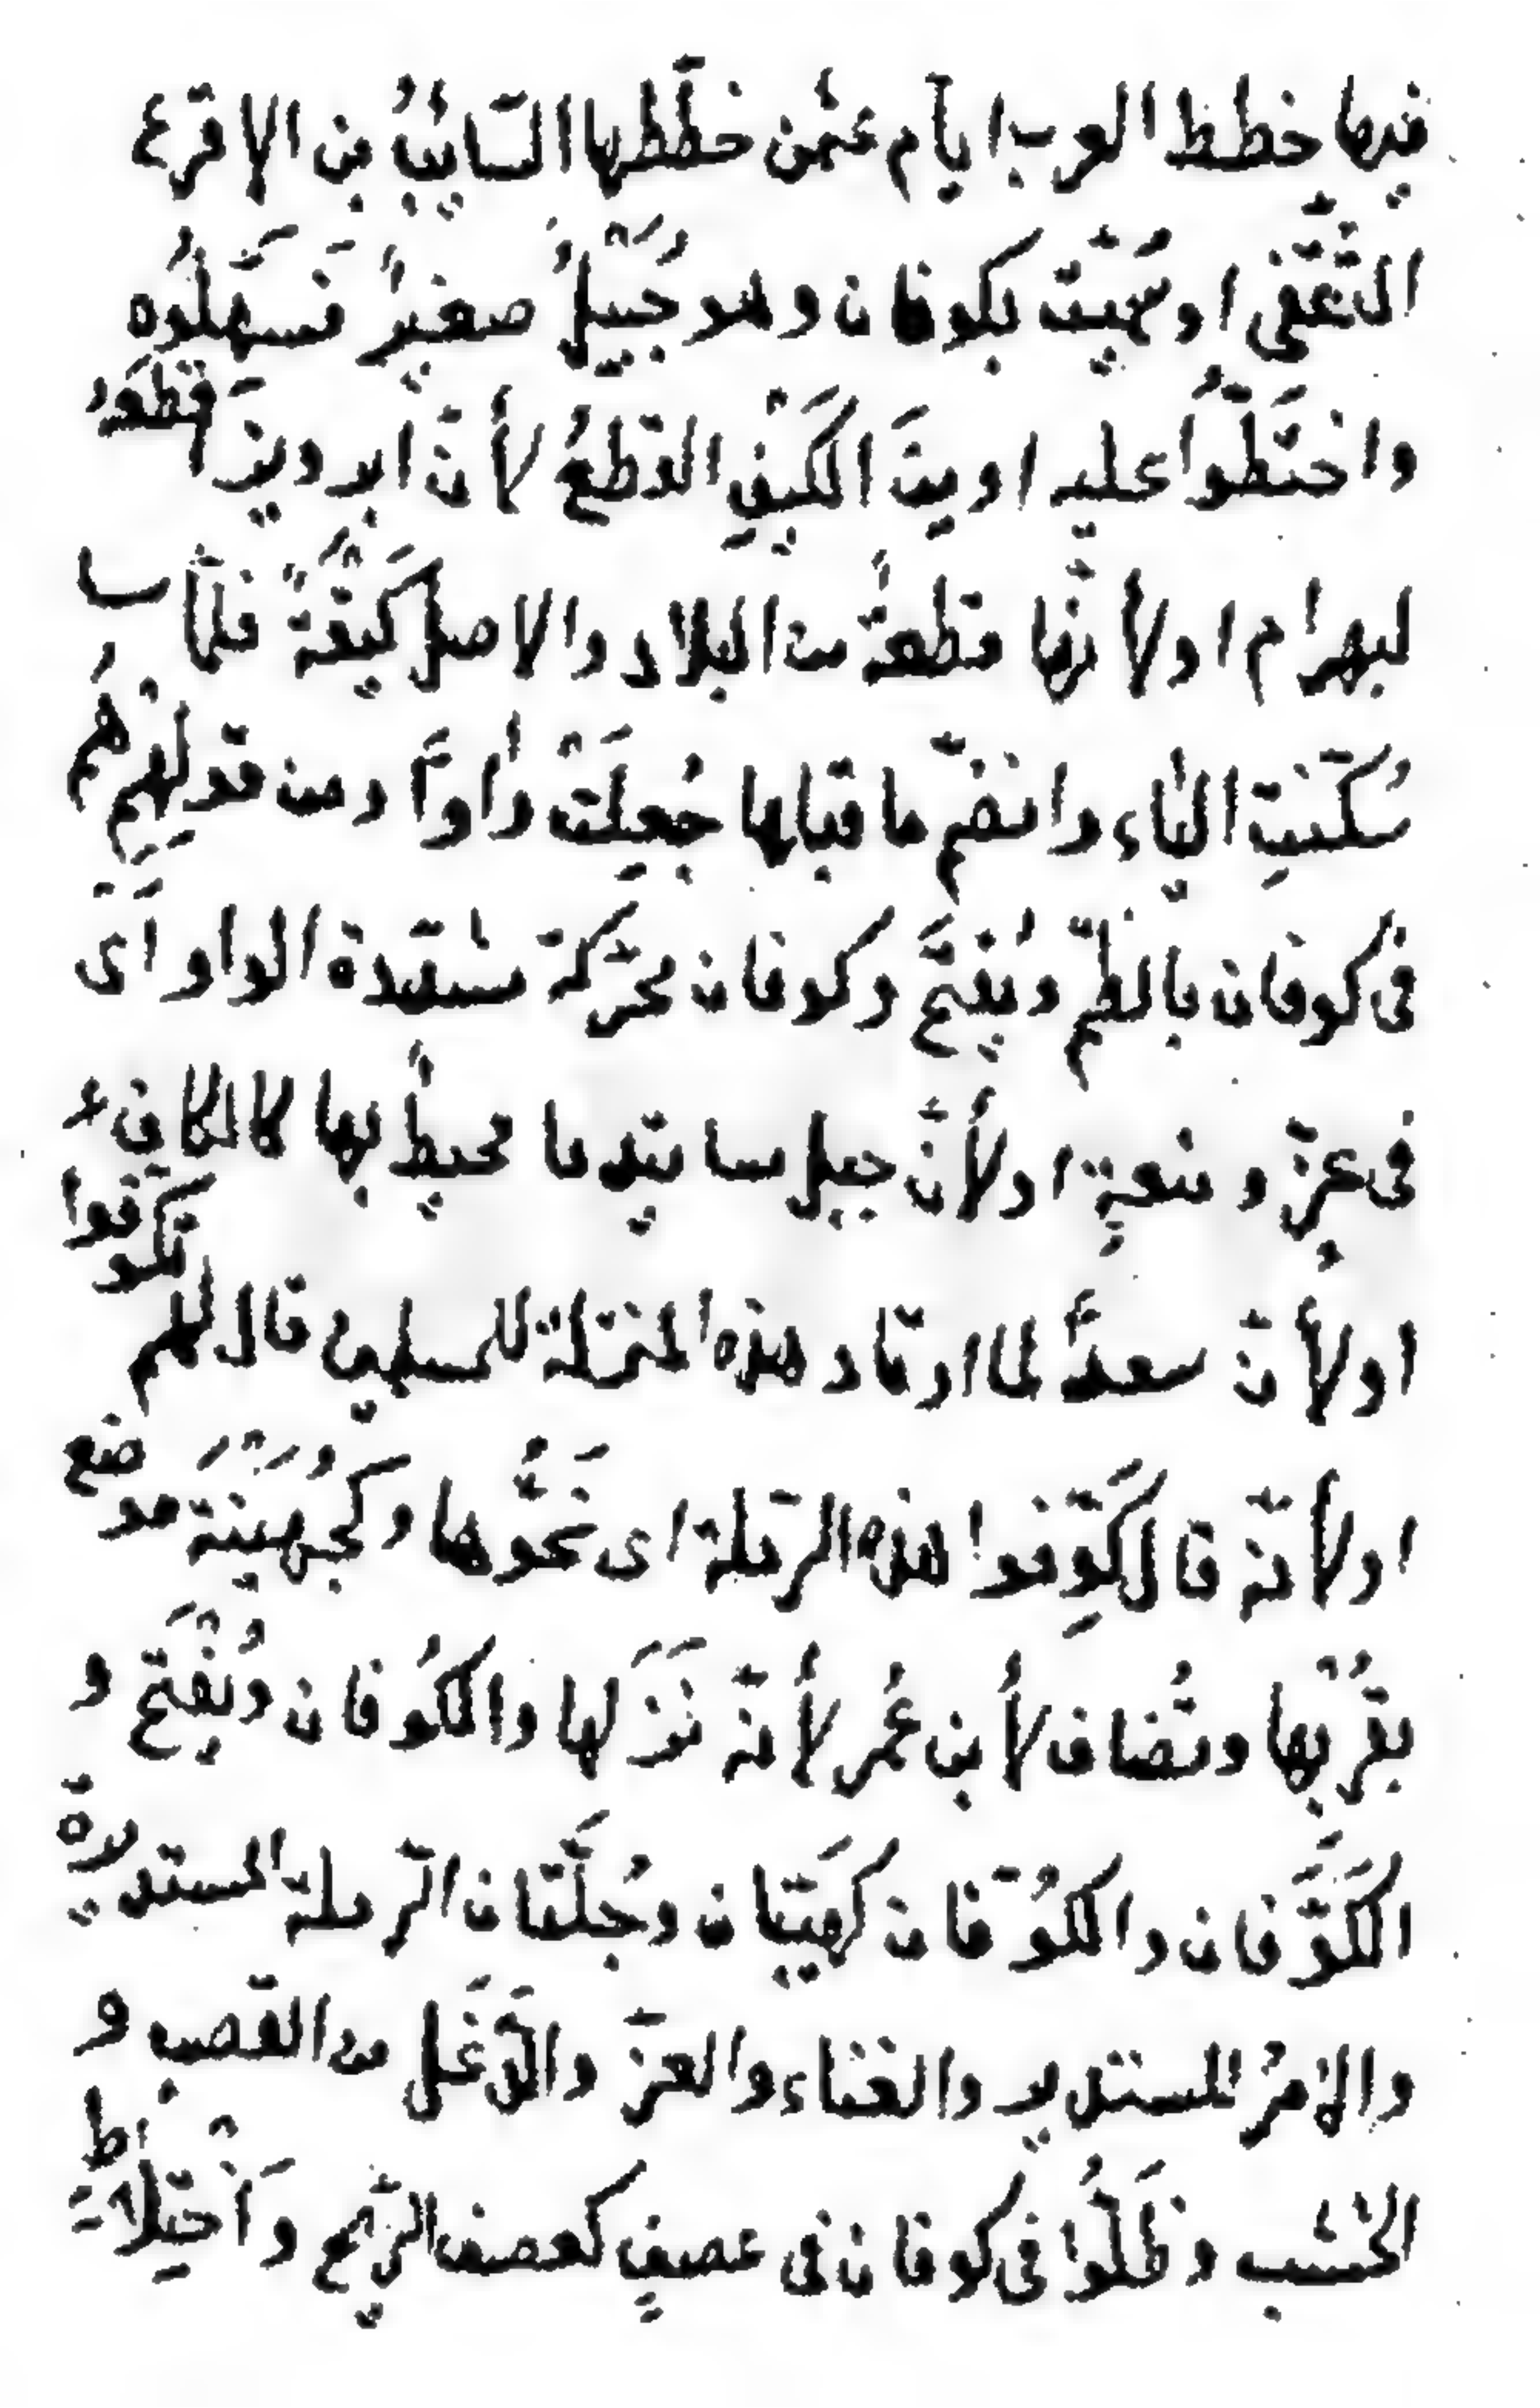 فيها خطط العرب ايّام عثمن خطّطها السّائبُ بن الاقرع
الثّقفى او سُمّيت بكوفان وهو جُبَيْلٌ صغيرٌ فَسَهَّلُوه
واختَطّوُا عليه او من الكَيْفِ القطعُ لأنّ ابرويزَ اقطعَهُ
لبهرام او لأنّها قطعةٌ من البلاد والاصل كَيْفَةٌ فلمّا
سُكّنتِ الياء وانضمّ ما قبلها جُعِلَتْ واواً ومن قولِهِم هُم
فى كوفان بالضّم ويُفْتَحُ وكوفان محرّكة مشدّدة الواو اى
فى عزّ ومنعةٍ او لأنَّ جبل ساتيدما محيطٌ بها كالكاف
او لأنّ سعداً لما ارتاد هذه المنزلة للمسلمين قال لهم تكوّفوا
او لأنّه قال كَوِّفوا هذه الرّملة اى نَحُّوها وكجُهَيْنَةَ موضع
بقُرْبها وتُضاف لأبن عُمر لأنّه نَزَلها والكُوفان ويُفْتَح و
الكَوَّفان والكُوّفان كهَيّبان وجُلّسَان الرّملة المستديرة
والامرُ المستدير والعناء والعزّ والدَّغَل من القصب و
الخشب وظَلُّوا فى كوفان فى عصفٍ كعصف الرّيح واَخْتِلاطٍ